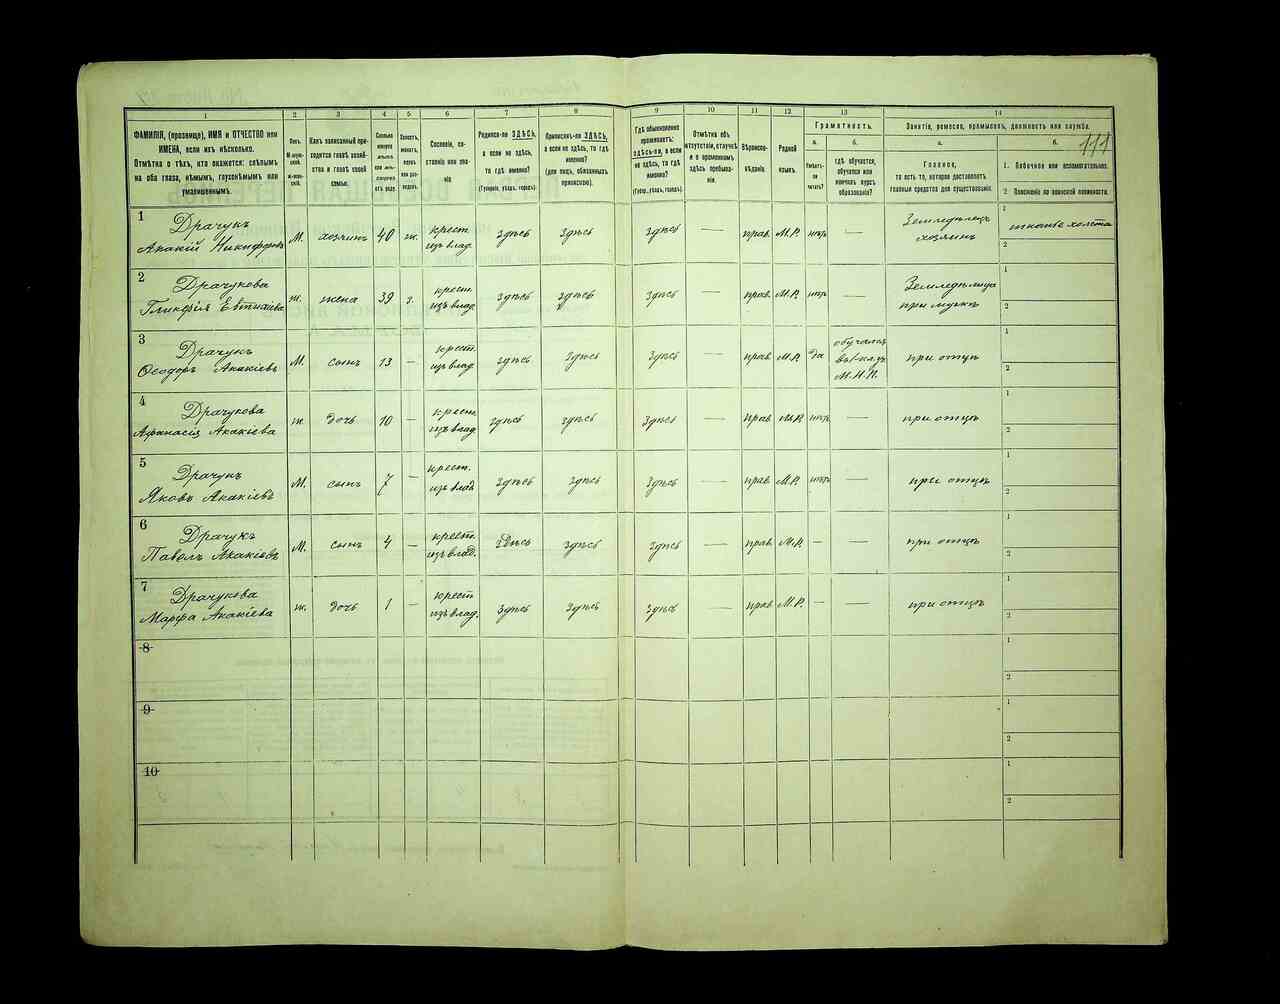 1 2 3 4 5 6 7 8 9 10 11 12 13 14
ФАМИЛІЯ, (прозвище), ИМЯ и ОТЧЕСТВО или
ИМЕНА, если ихъ нѣсколько.
Отмѣтка о тѣхъ, кто окажется: слѣпымъ
на оба глаза, нѣмымъ, глухонѣмымъ или
умалишеннымъ.
Полъ.
М-мужской.
Ж-женскій.
Какъ записанный приходится
главѣ хозяйства
и главѣ своей
семьи.
Сколько
минуло
лѣтъ
Холостъ,
женатъ,
вдовъ
или разведенъ.
Сословіе, состояніе
или званіе
Родился-ли ЗДѢСЬ,
а если не здѣсь,
то гдѣ именно?
(Губернія, уѣздъ, городъ).
Приписанъ-ли ЗДѢСЬ,
а если не здѣсь, то гдѣ
именно?
(для лицъ, обязанныхъ
припискою).
Гдѣ обыкновенно
проживаетъ:
здѣсь-ли, а если
не здѣсь, то гдѣ
именно?
(Губер., уѣздъ, городъ).
Отмѣтка объ
отсутствіи, отлучкѣ
и о временномъ
здѣсь пребываніи.
Вѣроисповѣданіе.
Родной
языкъ.
Грамотность.
а. б.
Умѣетъ-ли
читать?
гдѣ обучается,
обучался или
кончилъ курсъ
образованія?
Занятіе, ремесло, промыселъ, должность или служба.
а. б.
111
Главное,
то есть то, которое доставляетъ
главныя средства для существованія.
1. Побочное или вспомогательное.
2. Положеніе по воинской повинности.
1
Драчукъ
Акакій Никифоровъ М. хозяинъ 40 ж. крест. изъ влад. здѣсь здѣсь здѣсь — прав. М.Р. нѣтъ — Земледѣлецъ хозяинъ 1 тканье холста 2
2
Драчукова
Гликерія Евтихіева ж. жена 39 з. крест. изъ влад. здѣсь здѣсь здѣсь — прав. М.Р. нѣтъ — Земледѣлица при мужѣ 1 2
3
Драчукъ
Ѳеодоръ Акакіевъ М. сынъ 13 — крест. изъ влад. здѣсь здѣсь здѣсь — прав. М.Р. да обучался въ 1-кл. М.Н.П. при отцѣ 1 2
4
Драчукова
Афанасія Акакіева ж. дочь 10 — крест. изъ влад. здѣсь здѣсь здѣсь — прав. М.Р. нѣтъ — при отцѣ 1 2
5
Драчукъ
Яковъ Акакіевъ М. сынъ 7 — крест. изъ влад. здѣсь здѣсь здѣсь — прав. М.Р. нѣтъ — при отцѣ 1 2
6
Драчукъ
Павелъ Акакіевъ М. сынъ 4 — крест. изъ влад. здѣсь здѣсь здѣсь — прав. М.Р. — — при отцѣ 1 2
7
Драчукова
Марфа Акакіева ж. дочь 1 — крест. изъ влад. здѣсь здѣсь здѣсь — прав. М.Р. — — при отцѣ 1 2
8 1 2
9 1 2
10 1 2